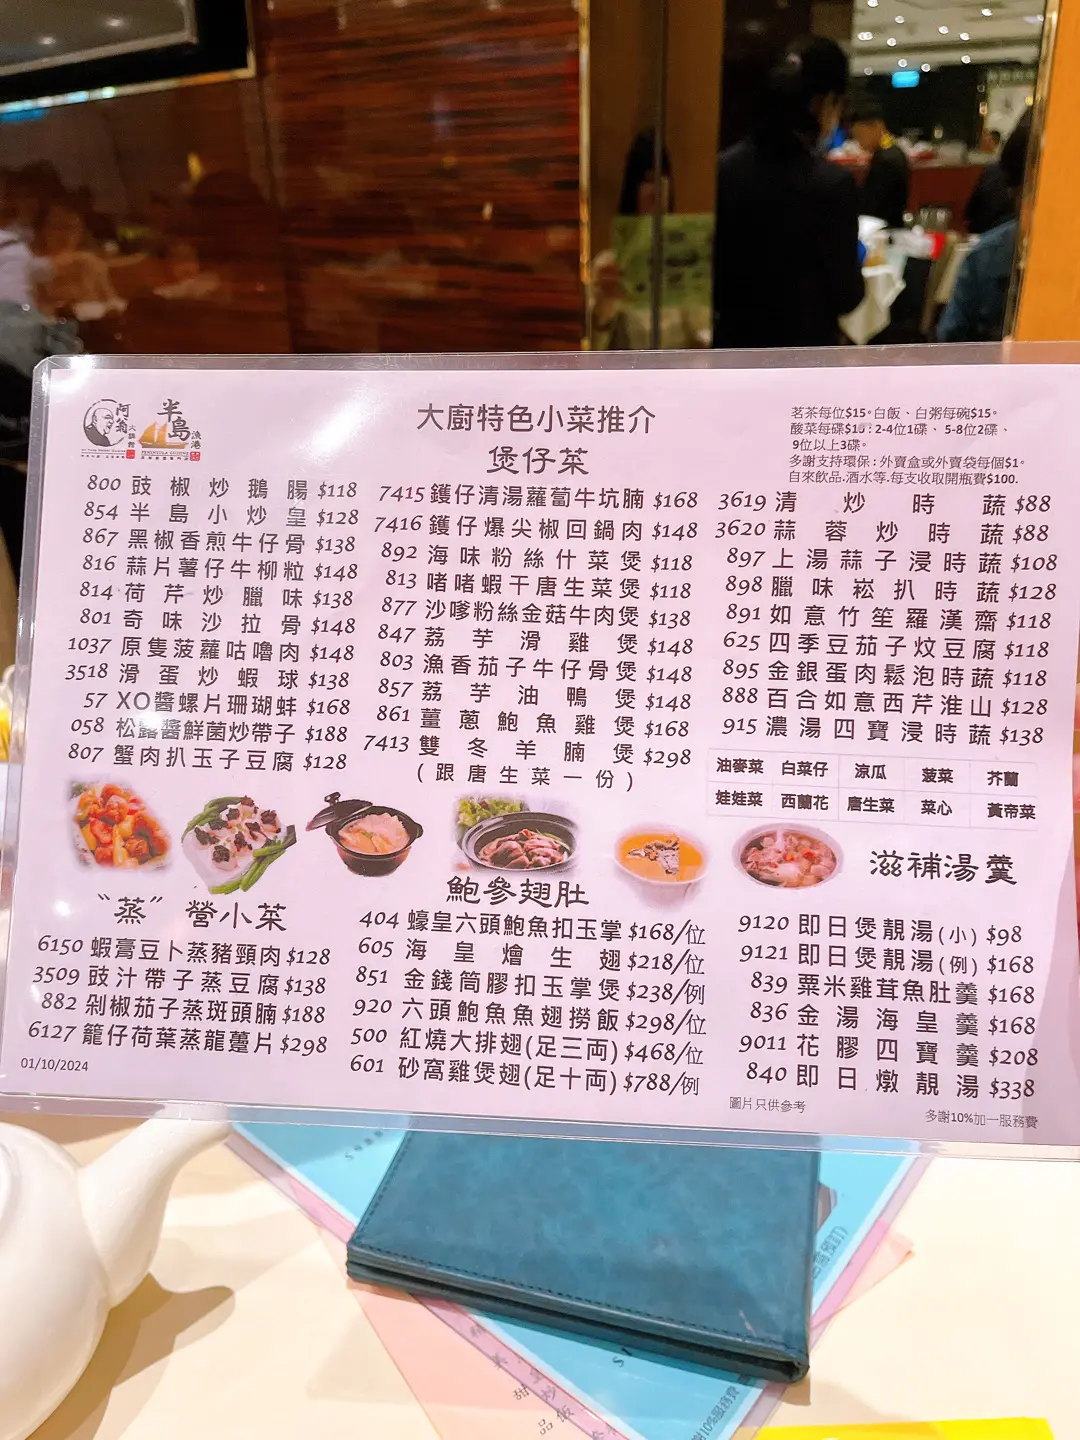 阿翁
火鍋館
半島
漁港
PENINSULA CUISINE
大廚特色小菜推介
茗茶每位$15。白飯、白粥每碗$15。
酸菜每碟$18：2-4位1碟、5-8位2碟、
9位以上3碟。
多謝支持環保：外賣盒或外賣袋每個$1。
自來飲品.酒水等.每支收取開瓶費$100.
800 豉椒炒鵝腸 $118
854 半島小炒皇 $128
867 黑椒香煎牛仔骨 $138
816 蒜片薯仔牛柳粒 $148
814 荷芹炒臘味 $138
801 奇味沙拉骨 $148
1037 原隻菠蘿咕嚕肉 $148
3518 滑蛋炒蝦球 $138
57 XO醬螺片珊瑚蚌 $168
058 松露醬鮮菌炒帶子 $188
807 蟹肉扒玉子豆腐 $128
煲仔菜
7415 鑊仔清湯蘿蔔牛坑腩 $168
7416 鑊仔爆尖椒回鍋肉 $148
892 海味粉絲什菜煲 $118
813 啫啫蝦干唐生菜煲 $118
877 沙嗲粉絲金菇牛肉煲 $138
847 荔芋滑雞煲 $148
803 漁香茄子牛仔骨煲 $148
857 荔芋油鴨煲 $148
861 薑蔥鮑魚雞煲 $168
7413 雙冬羊腩煲 $298
(跟唐生菜一份)
3619 清炒時蔬 $88
3620 蒜蓉炒時蔬 $88
897 上湯蒜子浸時蔬 $108
898 臘味崧扒時蔬 $128
891 如意竹笙羅漢齋 $118
625 四季豆茄子炆豆腐 $118
895 金銀蛋肉鬆泡時蔬 $118
888 百合如意西芹淮山 $128
915 濃湯四寶浸時蔬 $138
油麥菜 白菜仔 涼瓜 菠菜 芥蘭
娃娃菜 西蘭花 唐生菜 菜心 黃帝菜
“蒸”營小菜
6150 蝦膏豆卜蒸豬頸肉 $128
3509 豉汁帶子蒸豆腐 $138
882 剁椒茄子蒸斑頭腩 $188
6127 籠仔荷葉蒸龍躉片 $298
01/10/2024
鮑參翅肚
404 蠔皇六頭鮑魚扣玉掌 $168/位
605 海皇燴生翅 $218/位
851 金錢筒膠扣玉掌煲 $238/例
920 六頭鮑魚魚翅撈飯 $298/位
500 紅燒大排翅(足三両) $468/位
601 砂窩雞煲翅(足十両) $788/例
滋補湯羹
9120 即日煲靚湯(小) $98
9121 即日煲靚湯(例) $168
839 粟米雞茸魚肚羹 $168
836 金湯海皇羹 $168
9011 花膠四寶羹 $208
840 即日燉靚湯 $338
圖片只供參考
多謝10%加一服務費